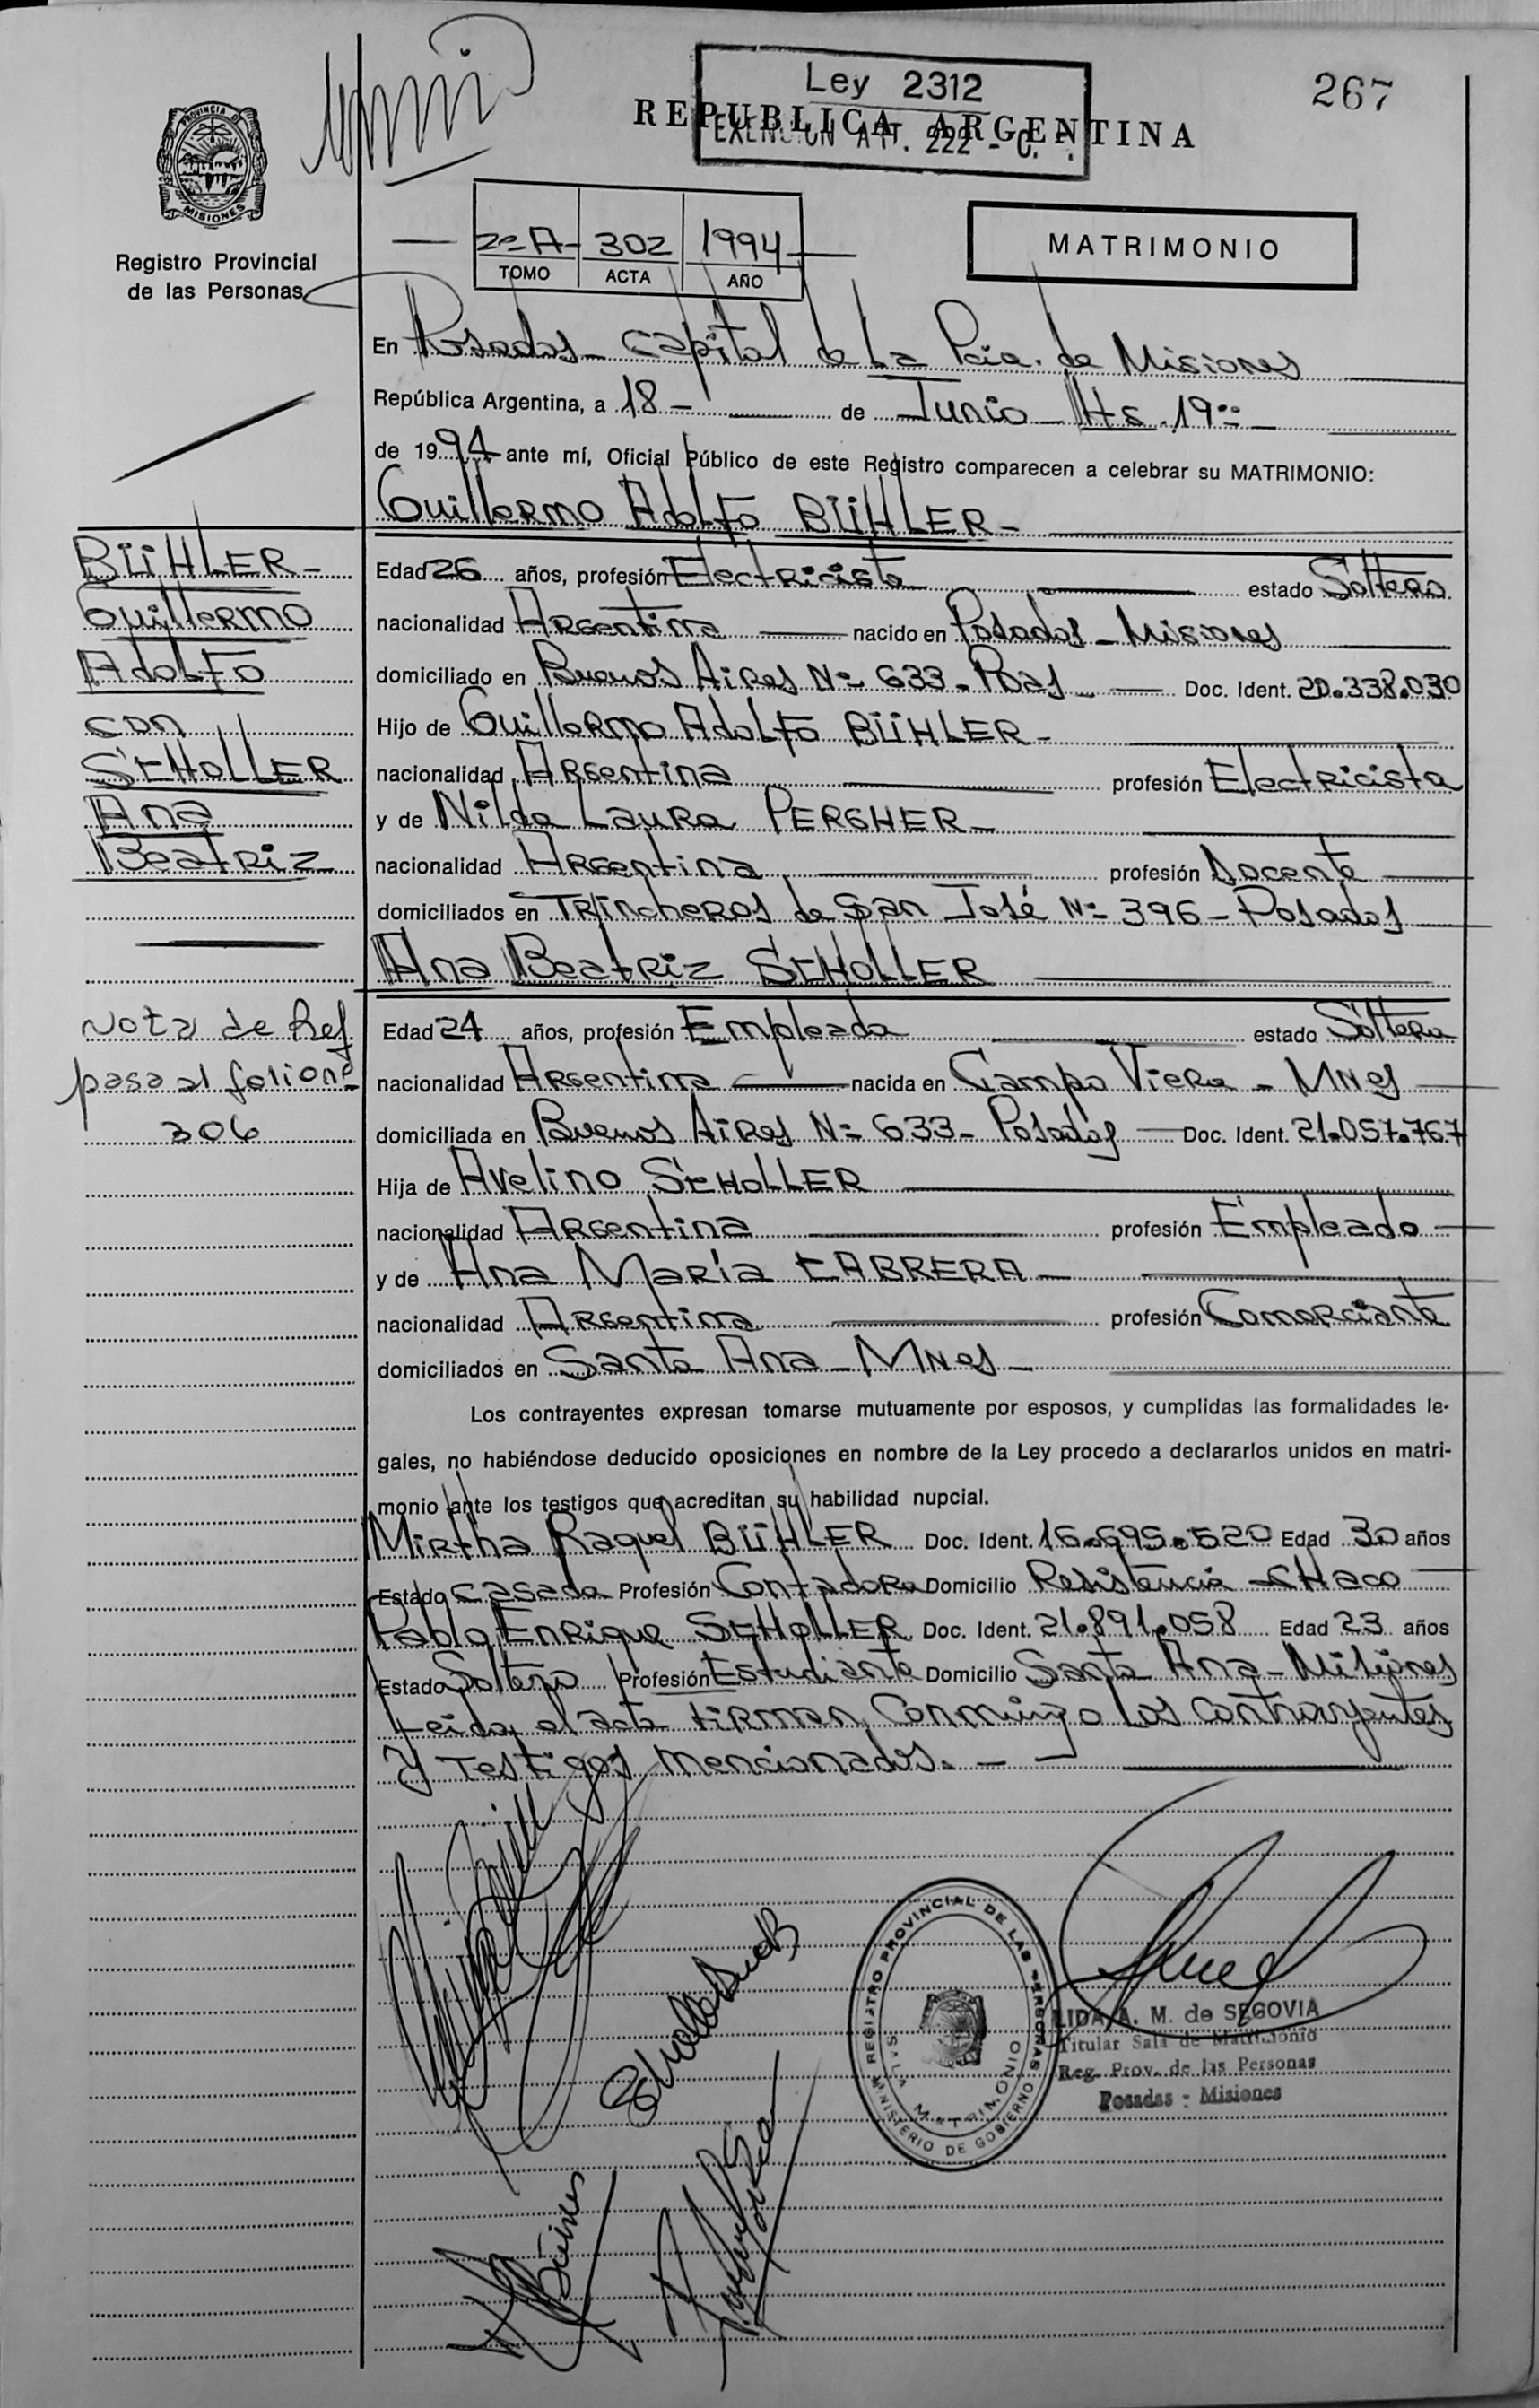 267
Ley 2312
REPUBLICA ARGENTINA
EXENCION ART. 222 - C.
PROVINCIA DE
MISIONES
Registro Provincial
de las Personas
2º A 302 1994
TOMO ACTA AÑO
MATRIMONIO
En Posadas - Capital de La Pcia. de Misiones
República Argentina, a 18 - de Junio - Hs. 19
de 1994 ante mí, Oficial Público de este Registro comparecen a celebrar su MATRIMONIO:
Guillermo Adolfo BÜHLER -
BÜHLER -
Guillermo
Adolfo
con
SCHOLLER
Ana
Beatriz
Edad 26 años, profesión Electricista estado Soltero
nacionalidad Argentina nacido en Posadas - Misiones
domiciliado en Buenos Aires Nº 633 - Pdas Doc. Ident. 20.338.030
Hijo de Guillermo Adolfo BÜHLER -
nacionalidad Argentina profesión Electricista
y de Nilda Laura PERGHER -
nacionalidad Argentina profesión Docente
domiciliados en Trincheras de San José Nº 396 - Posadas
Ana Beatriz SCHOLLER
Nota de Ref
pasa al folio nº
306
Edad 24 años, profesión Empleada estado Soltera
nacionalidad Argentina nacida en Campo Viera - Mnes
domiciliada en Buenos Aires Nº 633 - Posadas Doc. Ident. 21.057.767
Hija de Avelino SCHOLLER
nacionalidad Argentina profesión Empleado
y de Ana María CABRERA -
nacionalidad Argentina profesión Comerciante
domiciliados en Santa Ana - Mnes -
Los contrayentes expresan tomarse mutuamente por esposos, y cumplidas las formalidades le-
gales, no habiéndose deducido oposiciones en nombre de la Ley procedo a declararlos unidos en matri-
monio ante los testigos que acreditan su habilidad nupcial.
Mirtha Raquel BÜHLER Doc. Ident. 16.695.520 Edad 30 años
Estado Casada Profesión Contadora Domicilio Resistencia - CHaco
Pablo Enrique SCHOLLER Doc. Ident. 21.891.058 Edad 23 años
Estado Soltero Profesión Estudiante Domicilio Santa Ana - Misiones
Leida el acta firman, Conmigo Los Contrayentes
y Testigos mencionados. -
REGISTRO PROVINCIAL DE LAS PERSONAS
MINISTERIO DE GOBIERNO
SALA MATRIMONIO
LIDA A. M. de SEGOVIA
Titular Sala de Matrimonio
Reg. Prov. de las Personas
Posadas - Misiones